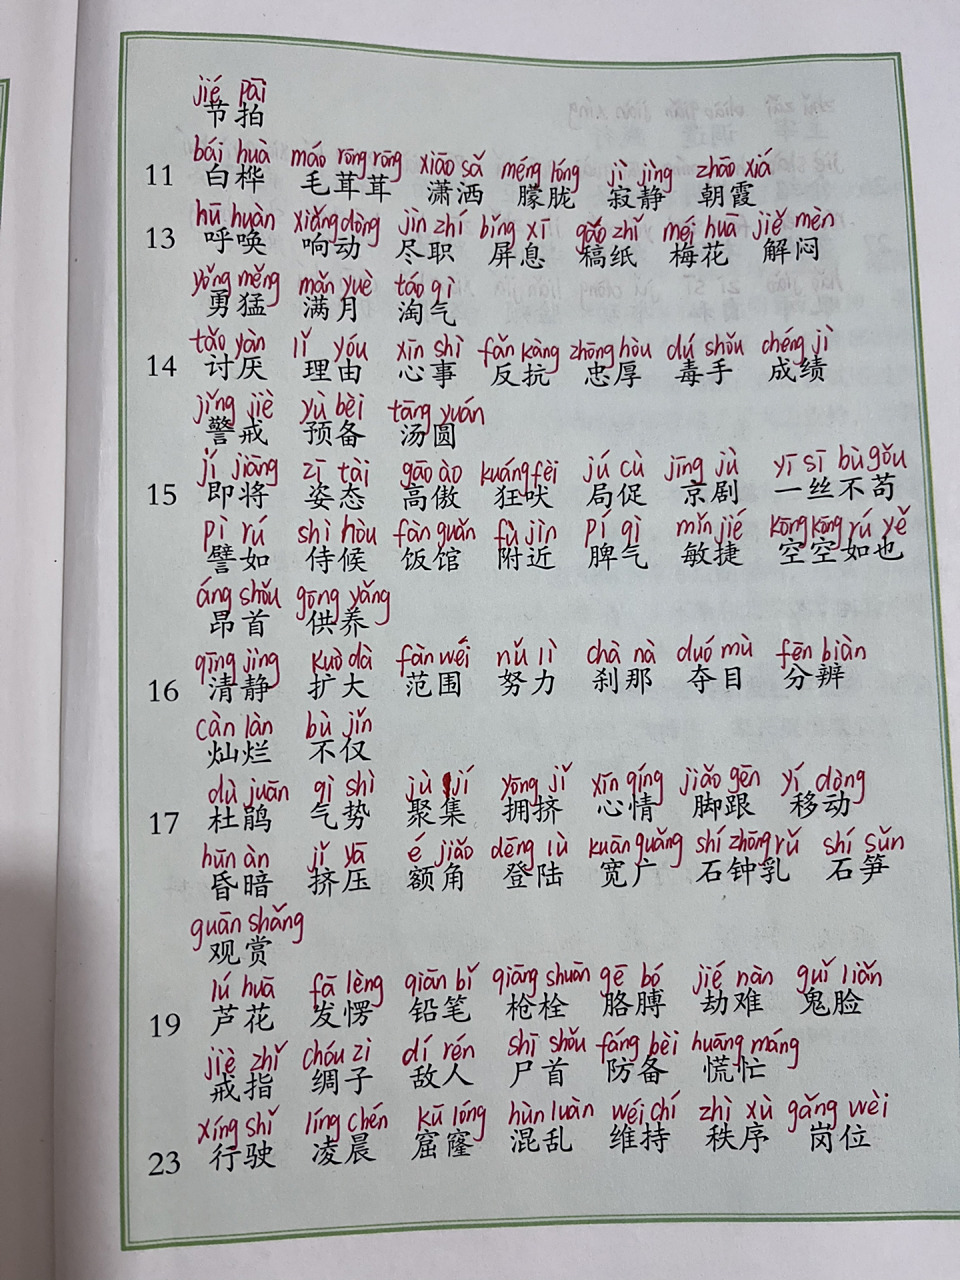 jié pāi
节拍
bái huà máo rōng rōng xiāo sǎ méng lóng jì jìng zhāo xiá
11 白桦 毛茸茸 潇洒 朦胧 寂静 朝霞
hū huàn xiǎng dòng jìn zhí bǐng xī gǎo zhǐ méi huā jiě mèn
13 呼唤 响动 尽职 屏息 稿纸 梅花 解闷
yǒng měng mǎn yuè táo qì
勇猛 满月 淘气
tǎo yàn lǐ yóu xīn shì fǎn kàng zhōng hòu dú shǒu chéng jì
14 讨厌 理由 心事 反抗 忠厚 毒手 成绩
jǐng jiè yù bèi tāng yuán
警戒 预备 汤圆
jí jiāng zī tài gāo ào kuáng fèi jú cù jīng jù yī sī bù gǒu
15 即将 姿态 高傲 狂吠 局促 京剧 一丝不苟
pì rú shì hòu fàn guǎn fù jìn pí qì mǐn jié kōng kōng rú yě
譬如 侍候 饭馆 附近 脾气 敏捷 空空如也
áng shǒu gōng yǎng
昂首 供养
qīng jìng kuò dà fàn wéi nǔ lì chà nà duó mù fēn biàn
16 清静 扩大 范围 努力 刹那 夺目 分辨
càn làn bù jǐn
灿烂 不仅
dù juān qì shì jù jí yōng jǐ xīn qíng jiǎo gēn yí dòng
17 杜鹃 气势 聚集 拥挤 心情 脚跟 移动
hūn àn jǐ yā é jiǎo dēng lù kuān guǎng shí zhōng rǔ shí sǔn
昏暗 挤压 额角 登陆 宽广 石钟乳 石笋
guān shǎng
观赏
lú huā fā lèng qiān bǐ qiāng shuān gē bó jié nàn guǐ liǎn
19 芦花 发愣 铅笔 枪栓 胳膊 劫难 鬼脸
jiè zhǐ chóu zi dí rén shī shǒu fáng bèi huāng máng
戒指 绸子 敌人 尸首 防备 慌忙
xíng shǐ líng chén kū lóng hùn luàn wéi chí zhì xù gǎng wèi
23 行驶 凌晨 窟窿 混乱 维持 秩序 岗位